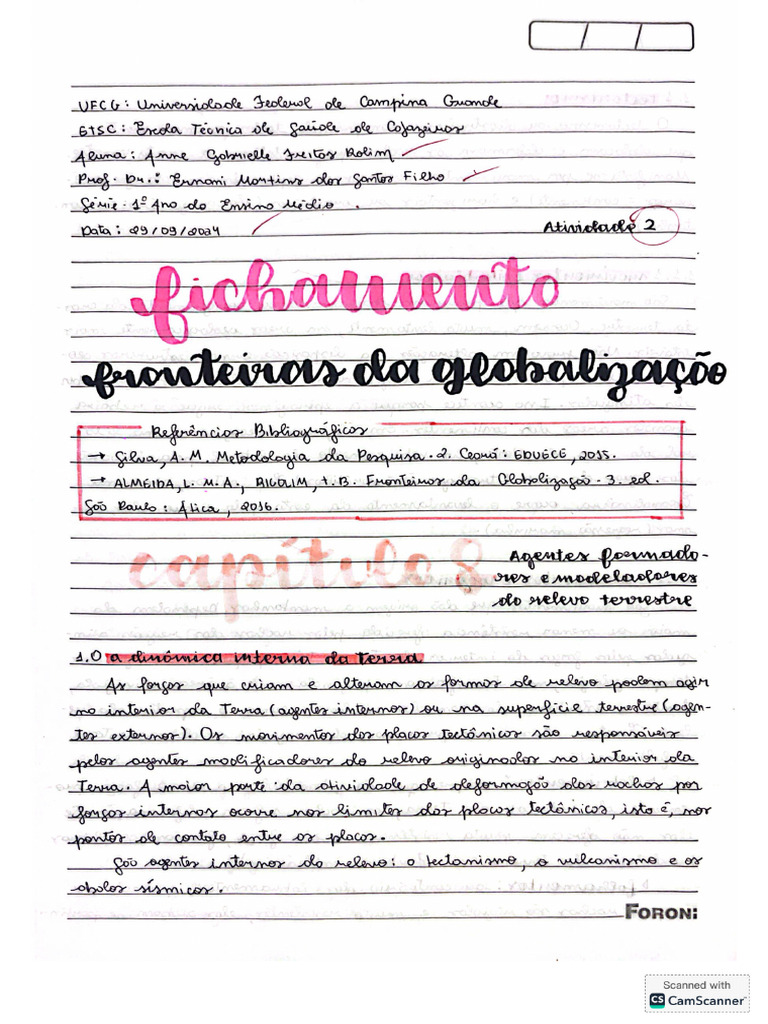 UFCG: Universidade Federal de Campina Grande
ETSC: Escola Técnica de Saúde de Cajazeiras
Aluna: Anne Gabrielle Freitas Rolim
Prof. Dr.: Ernani Martins dos Santos Filho
Série: 1º Ano do Ensino Médio.
Data: 29/09/2024
Atividade 2
fichamento
fronteiras da globalização
Referências Bibliográficas
→ Silva, A. M. Metodologia da Pesquisa. 2. Ceará: EDUECE, 2015.
→ ALMEIDA, L. M. A., RIGOLIM, t. B. Fronteiras da Globalização. 3. ed.
São Paulo: Ática, 2016.
capítulo 8
Agentes formado-
res e modeladores
do relevo terrestre
1.0 a dinâmica interna da Terra
As forças que criam e alteram as formas de relevo podem agir
no interior da Terra (agentes internos) ou na superfície terrestre (agen-
tes externos). Os movimentos das placas tectônicas são responsáveis
pelos agentes modificadores do relevo originados no interior da
Terra. A maior parte da atividade de deformação das rochas por
forças internas ocorre nos limites das placas tectônicas, isto é, nos
pontos de contato entre as placas.
São agentes internos do relevo: o tectanismo, o vulcanismo e os
abalos sísmicos.
FORONI
Scanned with
CS CamScanner